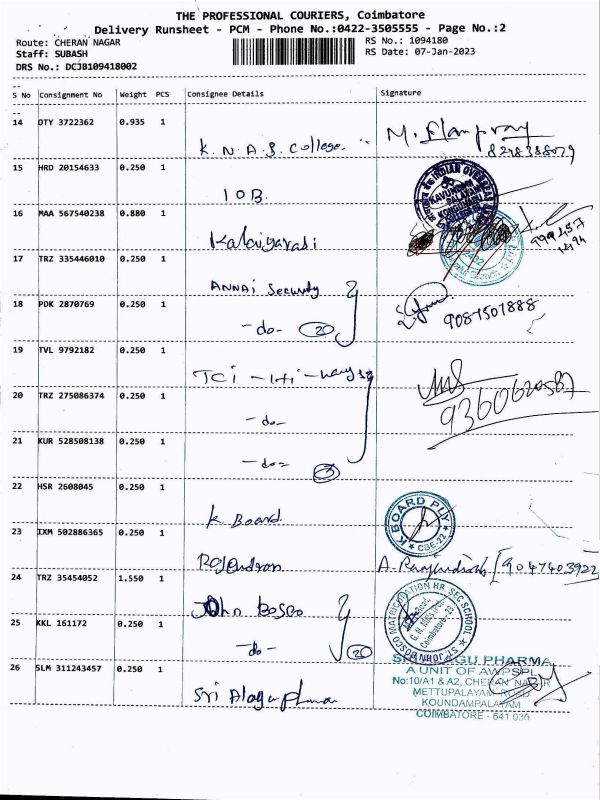 THE PROFESSIONAL COURIERS, Coimbatore
Delivery Runsheet - PCM - Phone No.:0422-3505555 - Page No.:2
Route: CHERAN NAGAR
RS No.: 1094180
Staff: SUBASH
RS Date: 07-Jan-2023
DRS No.: DCJB109418002
S No Consignment No Weight PCS Consignee Details Signature
14 DTY 3722362 0.935 1
K.N.A.G. College
15 HRD 20154633 0.250 1
IOB
16 MAA 567540238 0.880 1
Kalaiyarasi
17 TRZ 335446010 0.250 1
ANNAI Security
18 PDK 2870769 0.250 1
-do- 20
9087507888
19 TVL 9792182 0.250 1
TCI - Hi - ways
20 TRZ 275086374 0.250 1
-do-
21 KUR 528508138 0.250 1
-do- 3
22 HSR 2608045 0.250 1
K Board
K BOARD PLY
CBE-22
23 IXM 502886365 0.250 1
Rajendran
9047403922
24 TRZ 35454052 1.550 1
John Bosco
ST. JOHN BOSCO MATRICULATION HR SEC SCHOOL
G. N. Mills Post
Coimbatore - 29
25 KKL 161172 0.250 1
-do- 20
26 SLM 311243457 0.250 1
Sri Alagu Pharma
SRI ALAGU PHARMA
A UNIT OF AWPSPL
No:10/A1 & A2, CHERAN NAGAR
METTUPALAYAM ROAD
KOUNDAMPALAYAM
COIMBATORE - 641 030